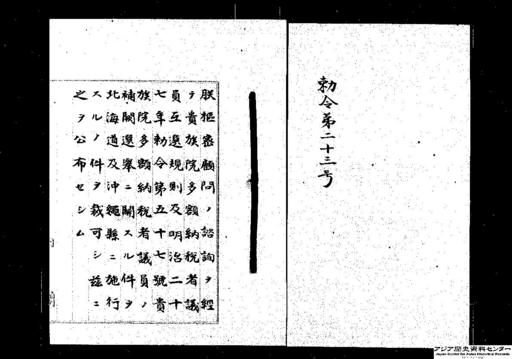 勅令第二十三号
朕枢密顧問ノ諮詢ヲ經
テ貴族院多額納税者議
員互選規則及明治二十
七年勅令第五十七號貴
族院多額納税者議員ノ
補闕選擧ニ關スル件ヲ
北海道及沖繩縣ニ施行
スルノ件ヲ裁可シ茲ニ
之ヲ公布セシム
アジア歴史資料センター
Japan Center for Asian Historical Records